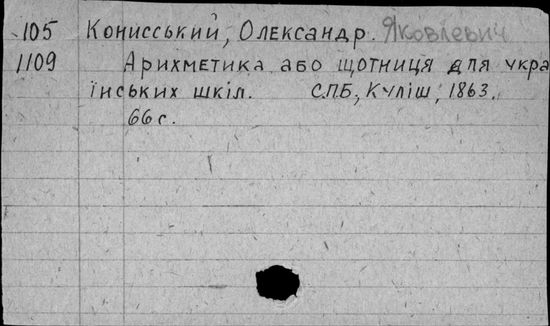 105 Конисський, Олександр. Яковлевич
1109 Арихметика або щотниця для укра
їнських шкіл. СПБ, Куліш, 1863.
66 с.